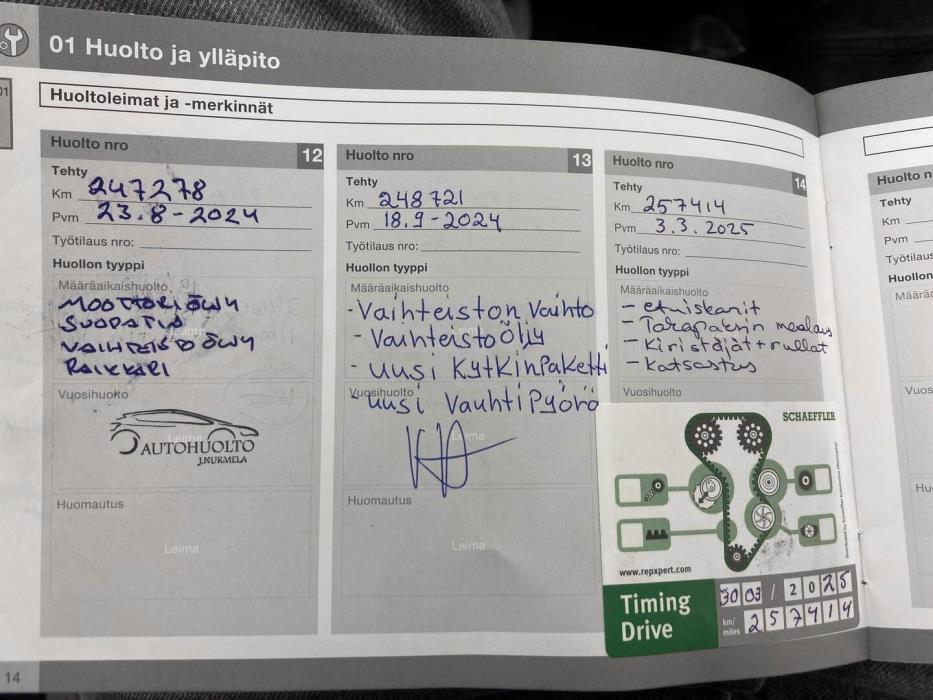 01 Huolto ja ylläpito
Huoltoleimat ja -merkinnät
Huolto nro 12
Tehty
Km 247278
Pvm 23.8-2024
Työtilaus nro:
Huollon tyyppi
Määräaikaishuolto
MOOTTORIÖLJY
SUODATIN
VAIHTEISTOÖLJY
RAIKKARI
Vuosihuolto
AUTOHUOLTO
J.NURMELA
Leima
Huomautus
Leima
Huolto nro 13
Tehty
Km 248721
Pvm 18.9-2024
Työtilaus nro:
Huollon tyyppi
Määräaikaishuolto
- Vaihteiston Vaihto
- Vaihteistoöljy
- uusi Kytkinpaketti
Vuosihuolto
- uusi Vauhtipyörö
Leima
Huomautus
Leima
Huolto nro 14
Tehty
Km 257414
Pvm 3.3.2025
Työtilaus nro:
Huollon tyyppi
Määräaikaishuolto
- etuiskarit
- Takapakrin maalaus
- Kiristäjät + rullat
- Katsastus
Vuosihuolto
SCHAEFFLER
www.repxpert.com
Timing
Drive
30 03 / 2025
km/
miles
257414
Huolto n
Tehty
Km
Pvm
Työtilaus
Huollon
Määrää
Vuos
Hu
01
14